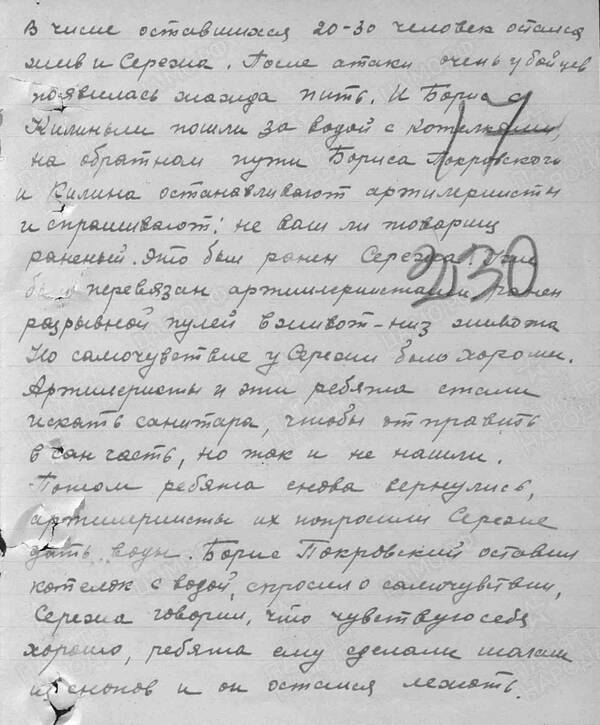 В числе оставшихся 20-30 человек остался
жив и Сережа. После атаки очень у бойцев
появилась жажда пить. И Борис с
Килиным пошли за водой с котелками,
на обратном пути Бориса Покровского
и Килина останавливают артилеристы
и спрашивают: не ваш ли товарищ
раненый. Это был ранен Сережа.
был перевязан артиллеристами ранен
разрывной пулей в живот-низ живота
Но самочувствие у Сережи было хорошо.
Артилеристы и эти ребята стали
искать санитара, чтобы отправить
в сан часть, но так и не нашли.
Потом ребята снова вернулись,
артилеристы их попросили Сереже
дать воды. Борис Покровский оставил
котелок с водой, спросил о самочувствии,
Сережа говорил, что чувствую себя
хорошо, ребята ему сделали шалаш
из снопов и он остался лежать.
17
230